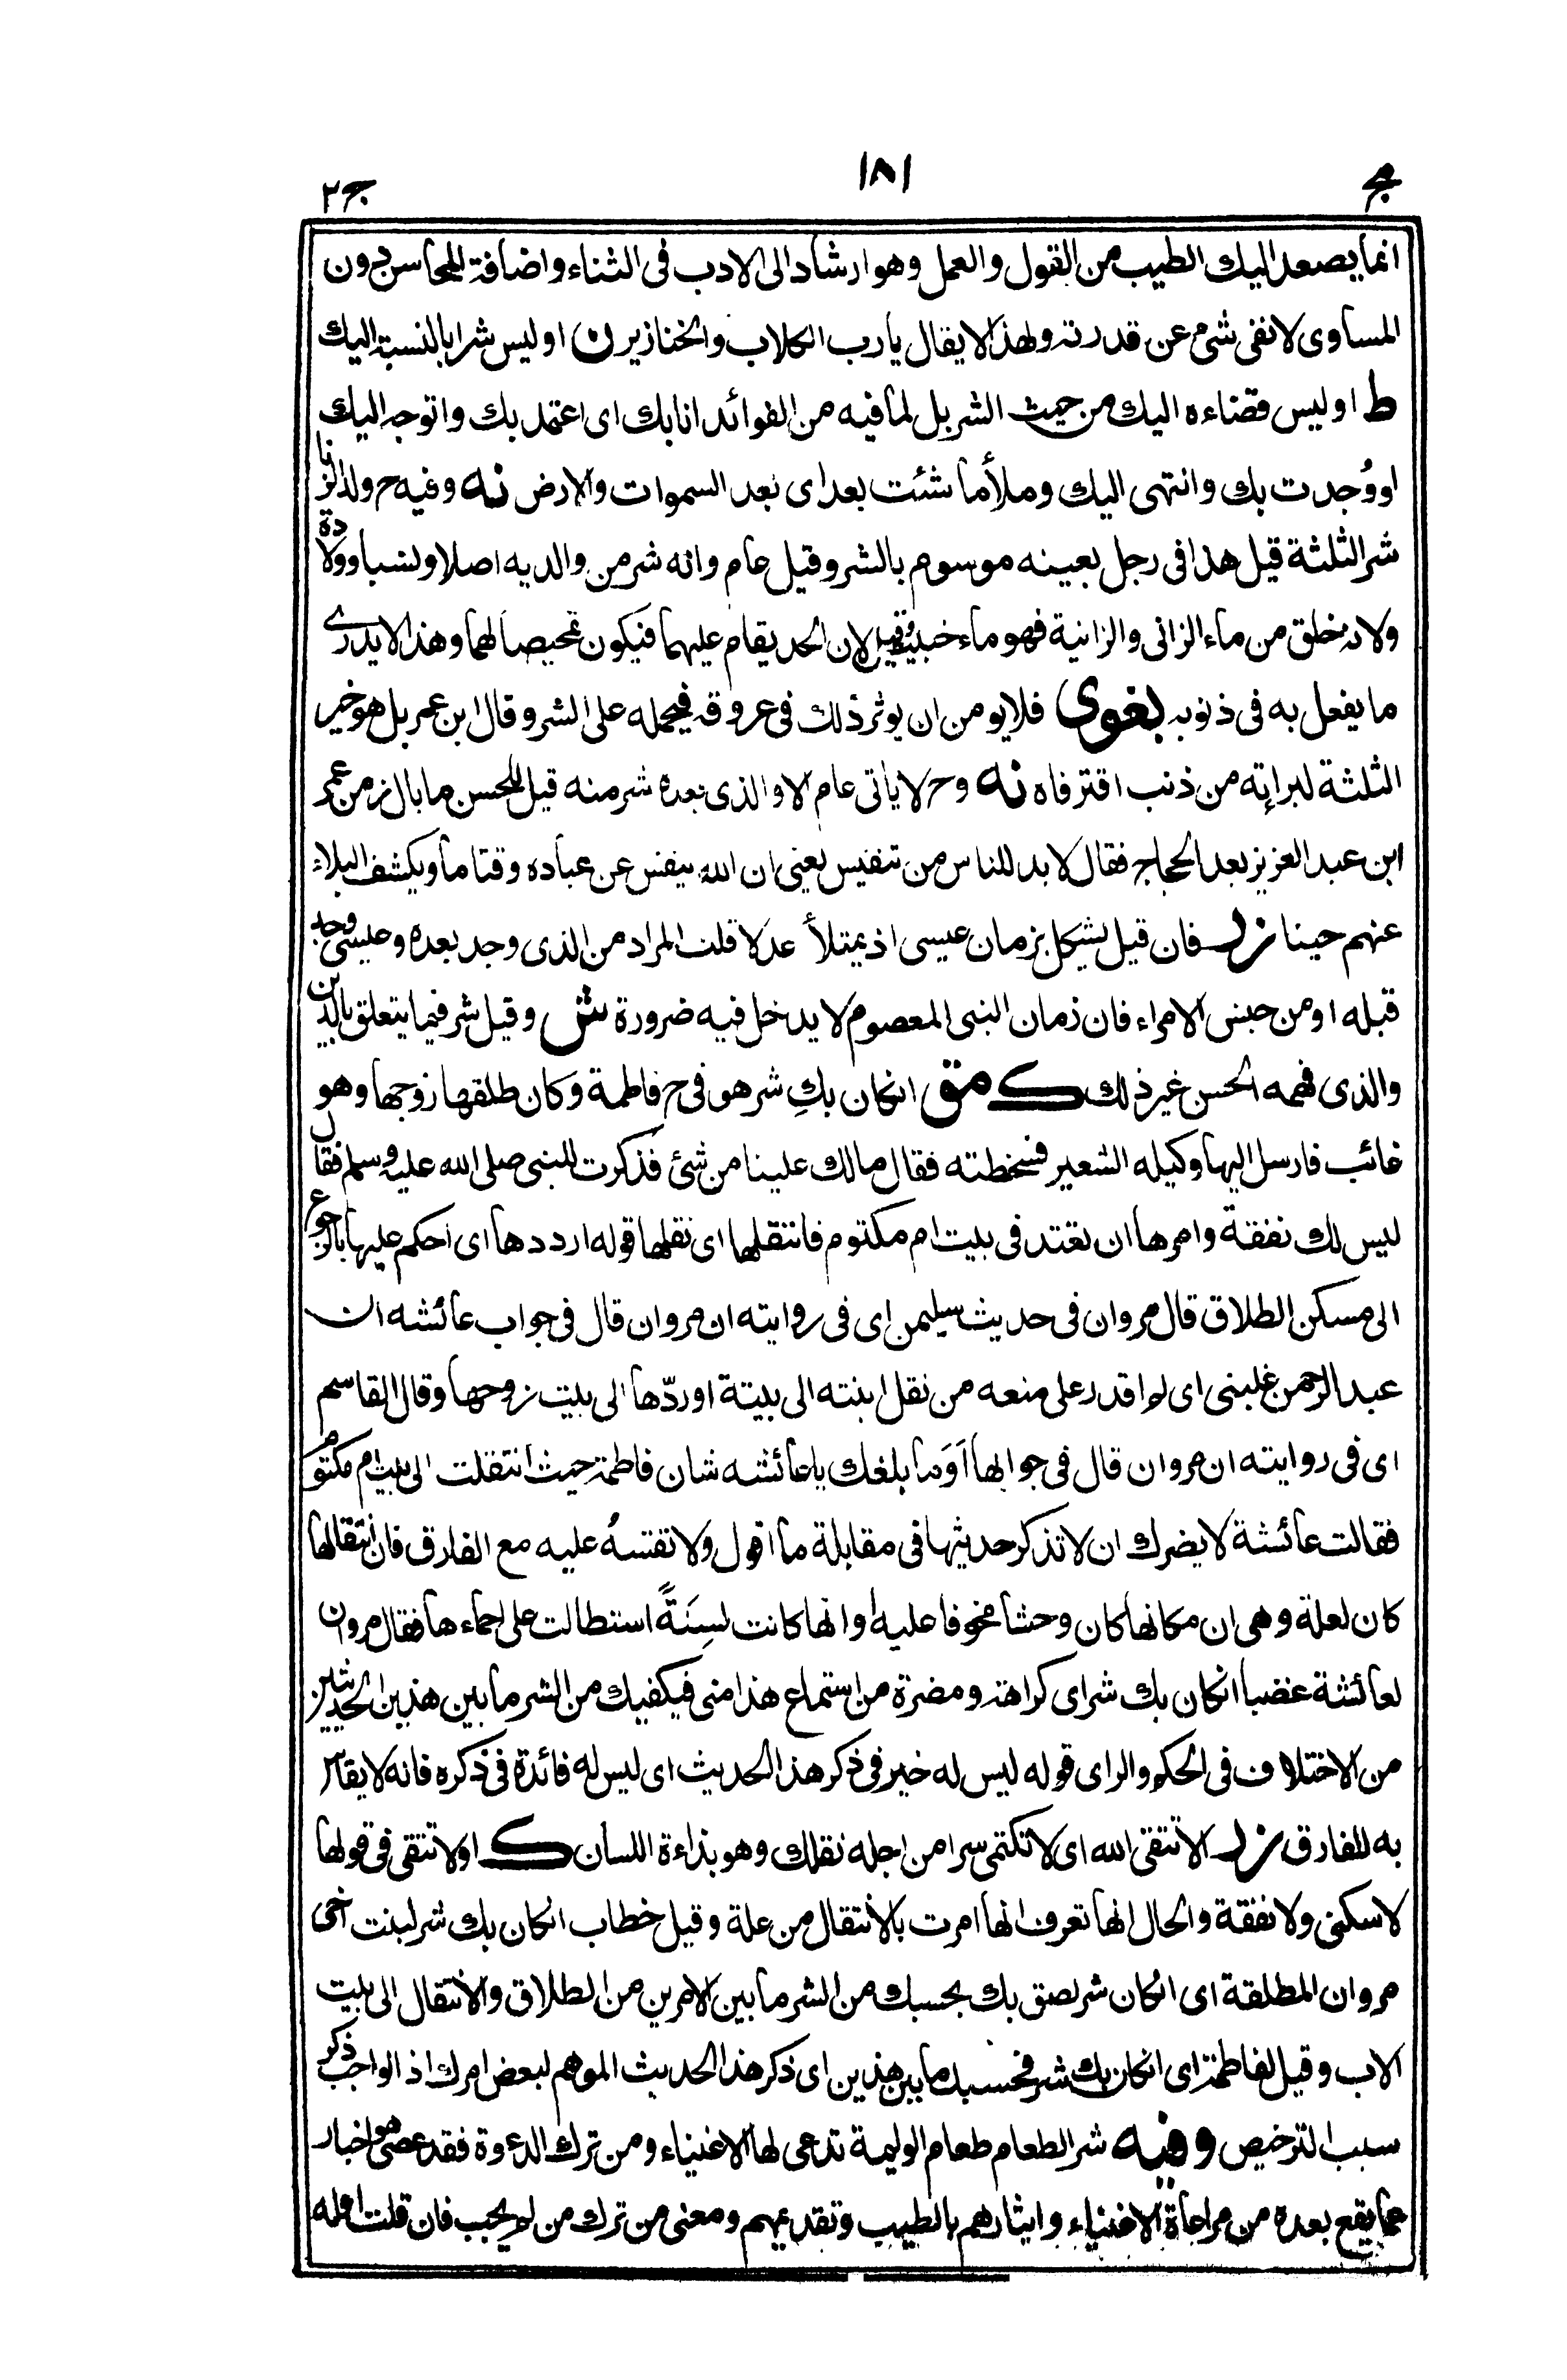 مج ١٨١ ج٢
انما يصعد اليك الطيب من القول والعمل وهو ارشاد الى الادب فى الثناء واضافة المحاسن دون
المساوى لا نفى شئ عن قدرته ولهذا لا يقال يا رب الكلاب والخنازير ن او ليس شرا بالنسبة اليك
ط او ليس قضاءه اليك من حيث الشر بل لما فيه من الفوائد انا بك اى اعتمد بك واتوجه اليك
او وُجدت بك وانتهى اليك وملأ ما شئت بعد اى بعد السموات والارض نه وفيه ح ولد الزنا
شر الثلثة قيل هذا فى رجل بعينه موسوم بالشر وقيل عام وانه شر من والديه اصلا ونسبا وولادة
ولانه خلق من ماء الزانى والزانية فهو ماء خبيث وقيل لان الحد يقام عليهما فيكون تمحيصا لهما وهذا لا يدرى
ما يفعل به فى ذنوبه بغوى فلا يومن ان يوثر ذلك فى عروقه فيحمله على الشر وقال ابن عمر بل هو خير
الثلثة لبرايته من ذنب اقترفاه نه وح لا ياتى عام الا والذى بعده شر منه قيل للحسن ما بال زمن عمر
ابن عبد العزيز بعد الحجاج فقال لا بد للناس من تنفيس يعنى ان الله ينفس عن عباده وقتا ما ويكشف البلاء
عنهم حينا زر فان قيل يشكل بزمان عيسى اذ يمتلأ عدلا قلت المراد من الذى وجد بعده وعيسى وجد
قبله او من جنس الامراء فان زمان النبى المعصوم لا يدخل فيه ضرورة ش وقيل شر فيما يتعلق بالدين
والذى فهمه الحسن غير ذلك ك مق انكان بكِ شر هو فى ح فاطمة وكان طلقها زوجها وهو
غائب فارسل اليها وكيله الشعير فسخطته فقال مالك علينا من شئ فذكرت للنبى صلى الله عليه وسلم فقال
ليس لك نفقة وامرها ان تعتد فى بيت ام مكتوم فانتقلها اى نقلها قوله ارددها اى احكم عليها بالرجوع
الى مسكن الطلاق قال مروان فى حديث سليمن اى فى روايته ان مروان قال فى جواب عائشه ان
عبد الرحمن غلبنى اى لم اقدر على منعه من نقل ابنته الى بيتة او ردّها الى بيت زوجها وقال القاسم
اى فى روايته ان مروان قال فى جوابها اَوَما بلغك يا عائشه شان فاطمة حيث انتقلت الى بيت ام مكتوم
فقالت عائشة لا يضرك ان لا تذكر حديثها فى مقابلة ما اقول ولا تقسهُ عليه مع الفارق فان انتقالها
كان لعلة وهى ان مكانها كان وحشا مخوفا عليه او انها كانت لسِنَةً استطالت على احماءها فقال مروان
لعائشة غضبا انكان بك شر اى كراهة ومضرة من استماع هذا منى فيكفيك من الشر ما بين هذين الحديثين
من الاختلاف فى الحكم والراى قوله ليس له خير فى ذكر هذا الحديث اى ليس له فائدة فى ذكره فانه لا يقاس
به للفارق زر الا تتقى الله اى لا تكتمى سرا من اجله نقلك وهو بذاءة اللسان ك او لا تتقى فى قولها
لا سكنى ولا نفقة والحال انها تعرف انها امرت بالانتقال من علة وقيل خطاب انكان بك شر لبنت اخى
مروان المطلقة اى انكان شر لصق بك بحسبك من الشر ما بين الامرين من الطلاق والانتقال الى بيت
الاب وقيل لفاطمة اى انكان بك شر فحسبك ما بين هذين اى ذكر هذا الحديث الموهم لبعض امرك اذ الواجب ذكر
سبب الترخيص وفيه شر الطعام طعام الوليمة تدعى لها الاغنياء ومن ترك الدعوة فقد عصى هو اخبار
عما يقع بعده من مراعاة الاغنياء وايثارهم بالطيب وتقديمهم ومعنى من ترك من لم يجب فان قلت اوله